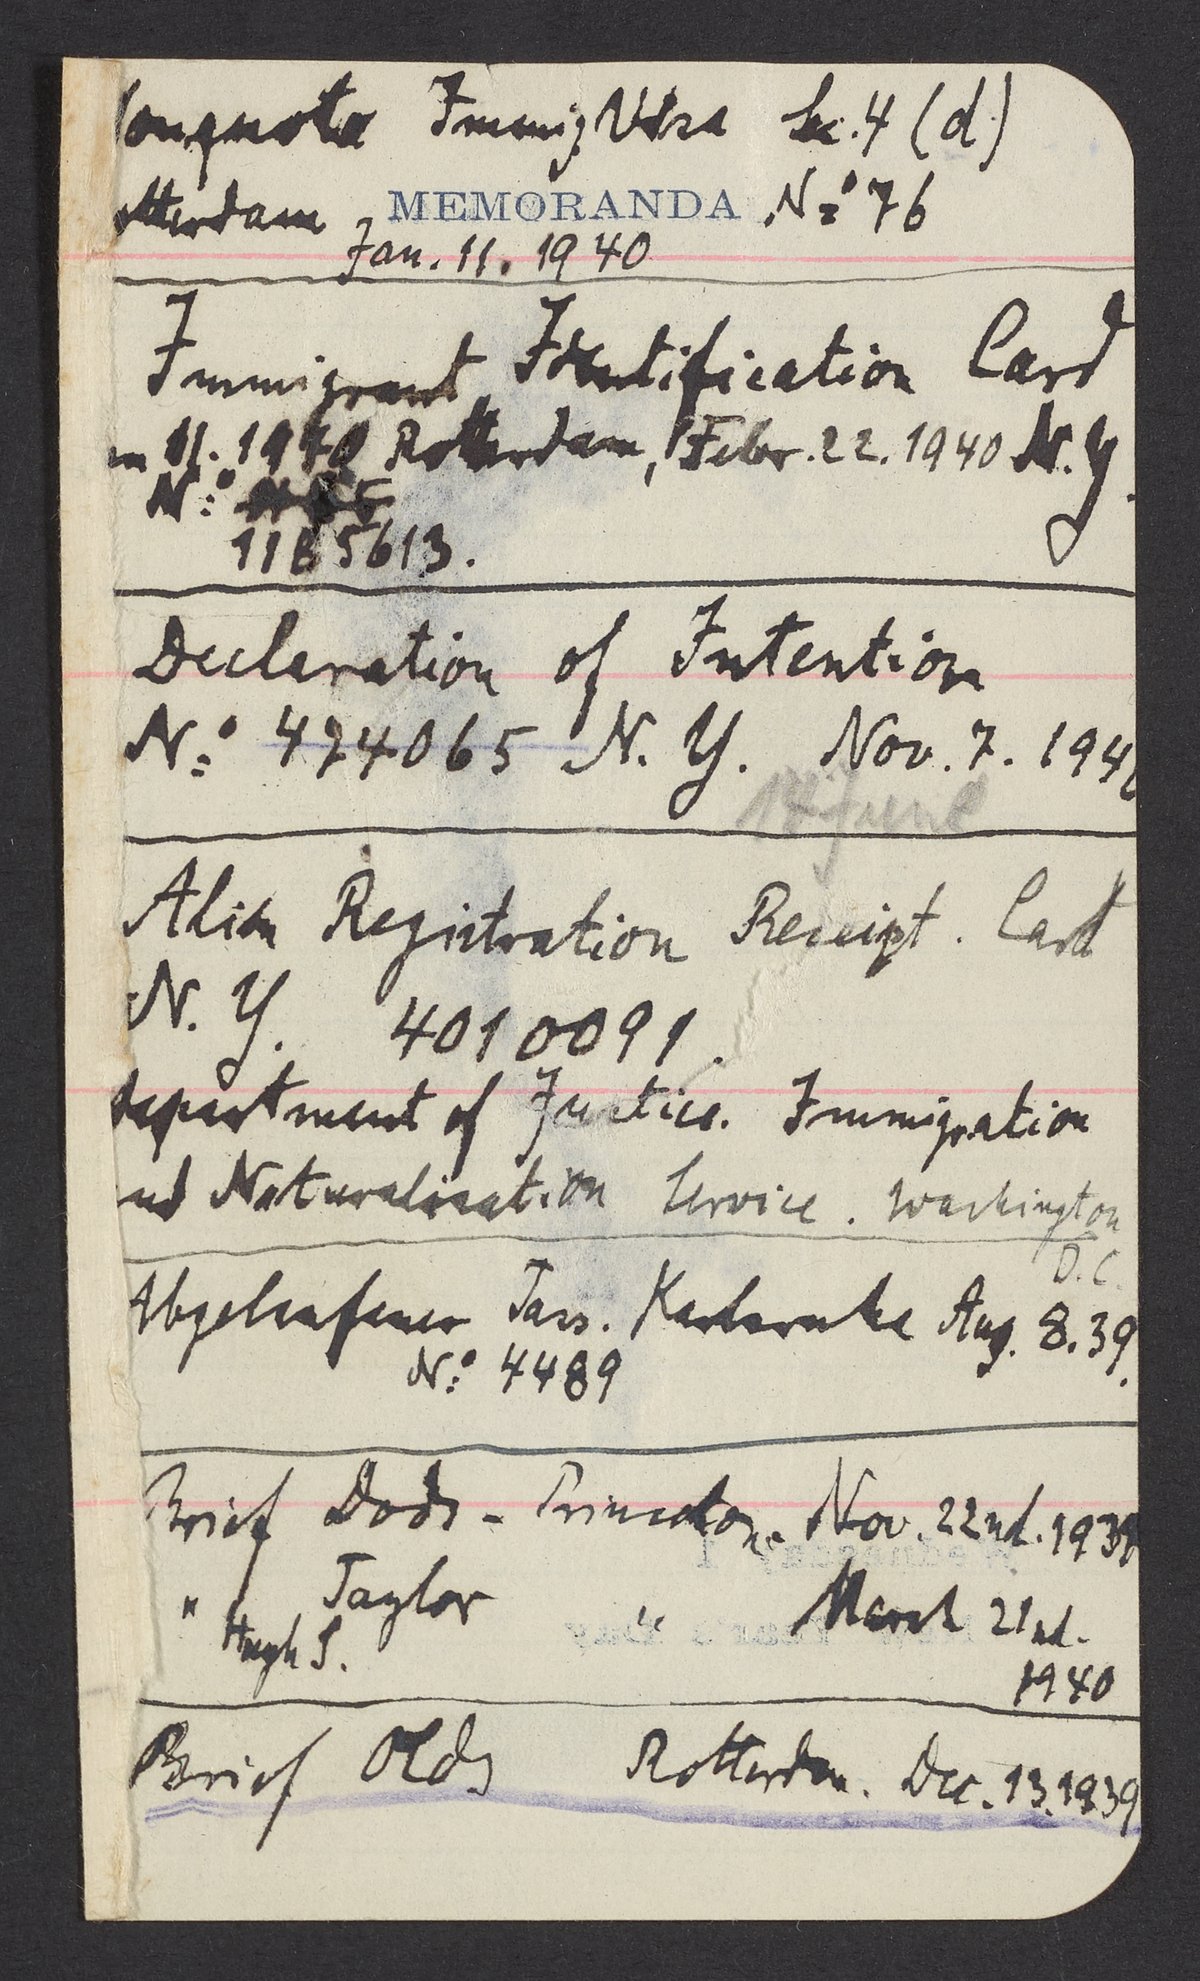 onquota Immig Visa Sec. 4 (d.)
MEMORANDA
otterdam Nº: 76
Jan. 11. 1940
Immigrant Identification Card
n 11. 1940 Rotterdam, Febr. 22. 1940 N. Y.
Nº:
1185613.
Declaration of Intention
Nº: 474065 N. Y. Nov. 7. 1940
17 June
Alien Registration Receipt. Card
N. Y. 4010091.
Department of Justice. Immigration
nd Naturalisation Service. Washington
D. C.
Abgelaufener Pass. Karlsruhe Aug. 8. 39.
Nº: 4489
Brief Dods - Princeton. Nov. 22nd. 1939
" Taylor " March 21nd.
Hugh S.
1940
Brief Olds Rotterdam. Dec. 13. 1939